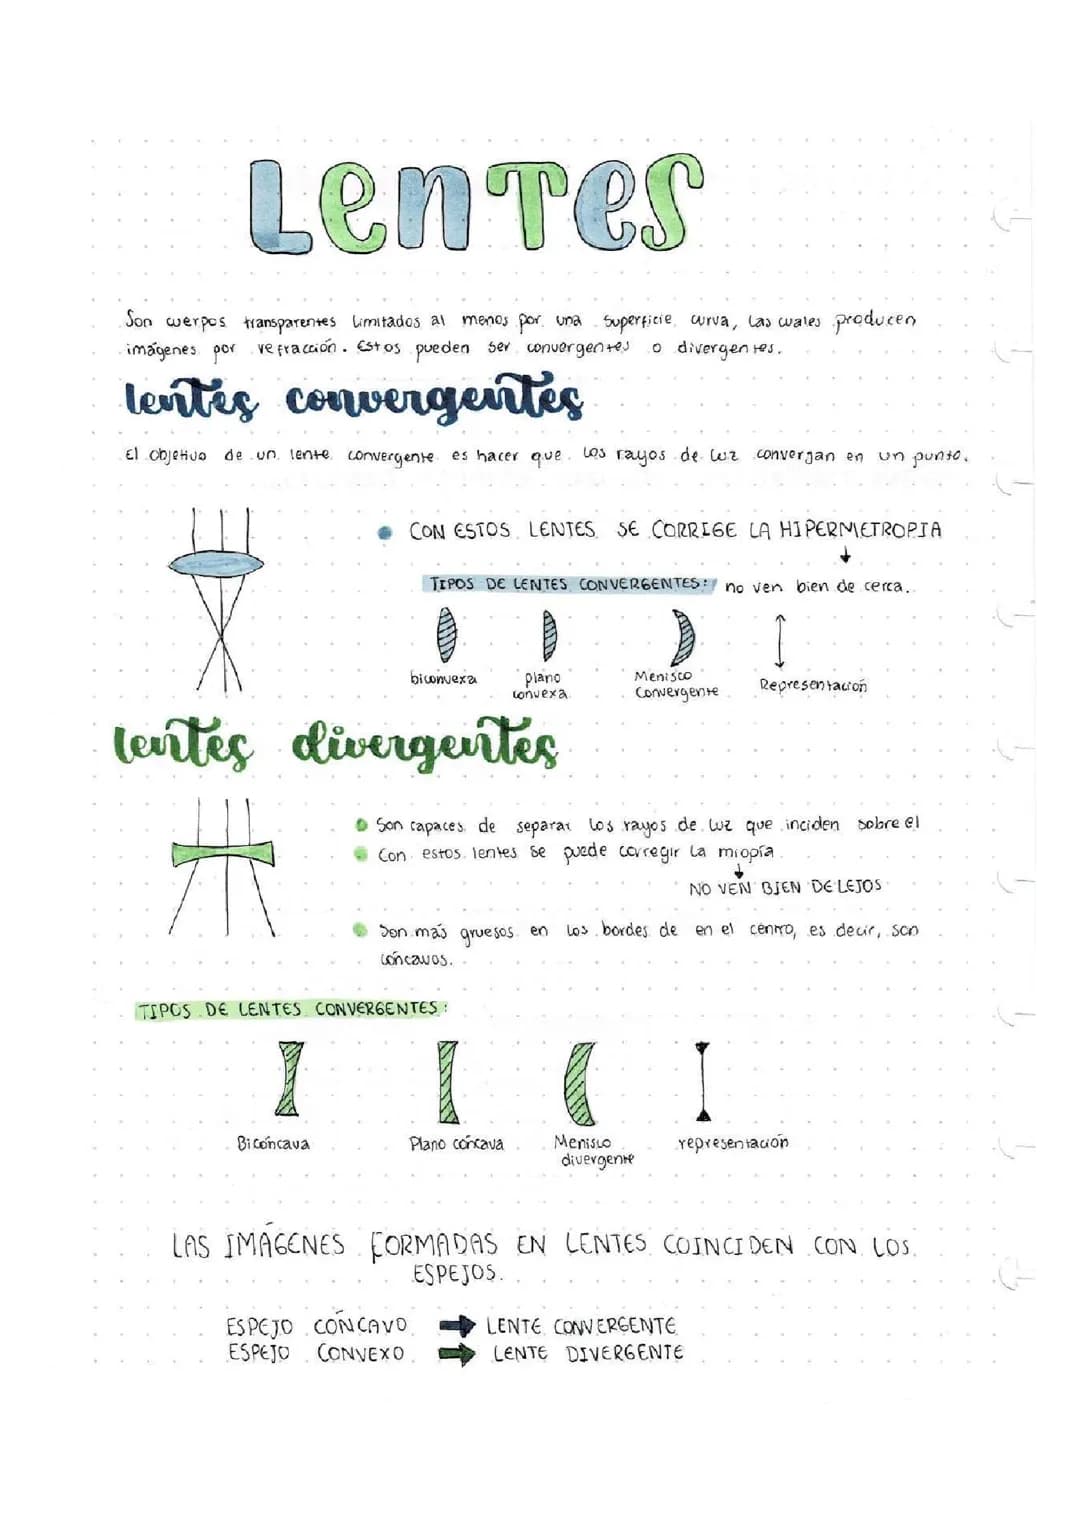 Lentes
Son cuerpos transparentes limitados al menos por una superficie curva, las cuales producen
imágenes por refracción. Estos pueden ser convergentes o divergentes.
lentes convergentes
El objetivo de un lente convergente es hacer que los rayos de luz convergan en un punto.
CON ESTOS LENTES SE CORRIGE LA HIPERMETROPIA
TIPOS DE LENTES CONVERGENTES: no ven bien de cerca.
biconvexa plano convexa Menisco Convergente Representación
lentes divergentes
Son capaces de separar los rayos de luz que inciden sobre él
Con estos lentes se puede corregir la miopía
NO VEN BIEN DE LEJOS
Son más gruesos en los bordes de en el centro, es decir, son
cóncavos.
TIPOS DE LENTES CONVERGENTES:
Bicóncava Plano cóncava Menisco divergente representación
LAS IMÁGENES FORMADAS EN LENTES COINCIDEN CON LOS
ESPEJOS.
ESPEJO CÓNCAVO LENTE CONVERGENTE
ESPEJO CONVEXO LENTE DIVERGENTE